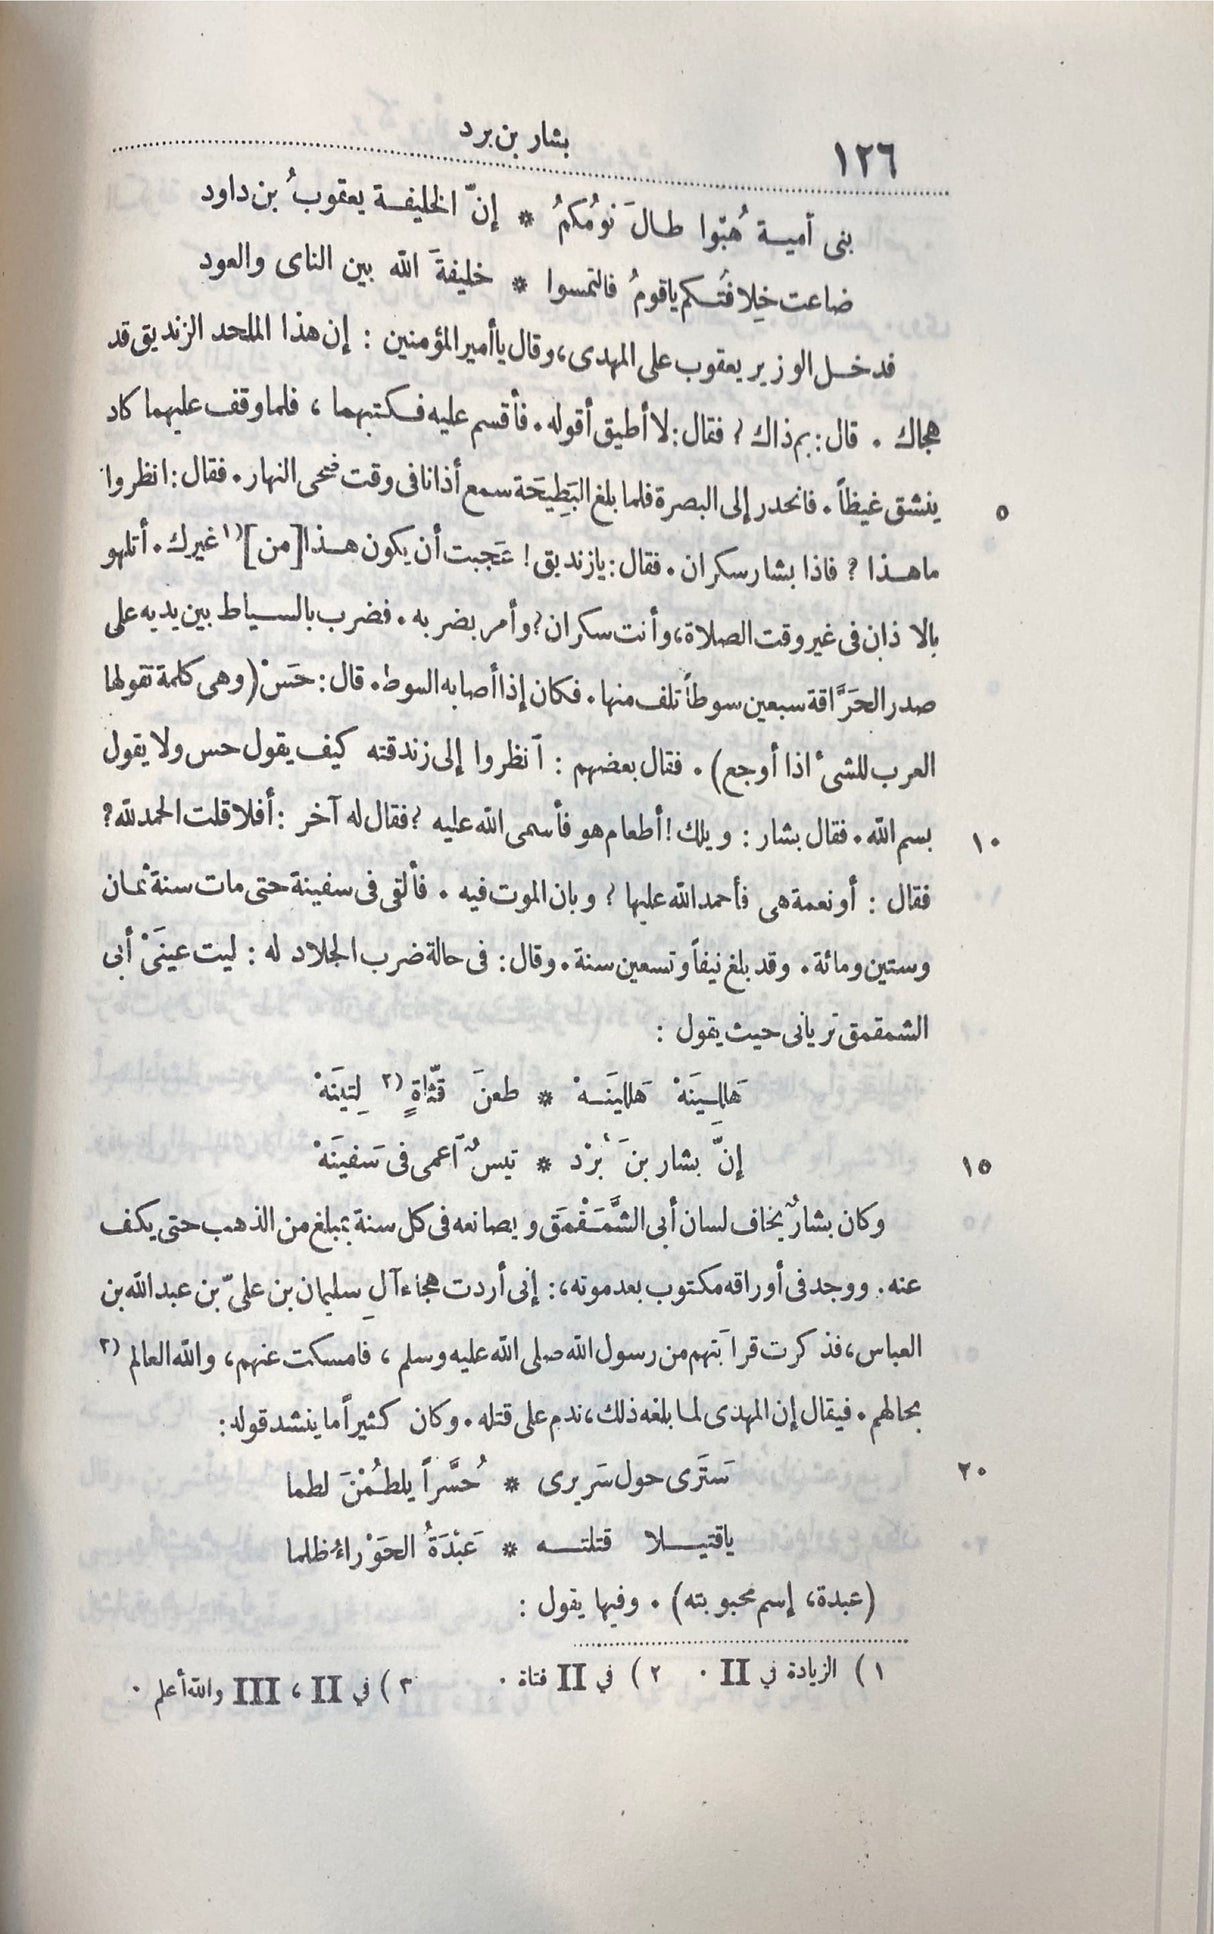 ١٢٦ بشار بن برد
بنى أمية هُبّوا طالَ نومُكمُ * إنّ الخليفة يعقوبُ بن داود
ضاعت خِلافَتُكم ياقومُ فالتمسوا * خليفةَ الله بين الناى والعود
فدخل الوزير يعقوب على المهدى، وقال يا أمير المؤمنين : إن هذا الملحد الزنديق قد
هجاك . قال: بم ذاك ? فقال: لا أطيق أقوله . فأقسم عليه فكتبهما ، فلما وقف عليهما كاد
ينشق غيظاً . فانحدر إلى البصرة فلما بلغ البَطِيحَة سمع أذانا فى وقت ضحى النهار . فقال: انظروا ٥
ما هذا ? فاذا بشار سكران . فقال: يا زنديق ! عَجبت أن يكون هذا [من] (١ غيرك . أتلهو
بالاذان فى غير وقت الصلاة، وأنت سكران? وأمر بضربه . فضرب بالسياط بين يديه على
صدر الحَرَّاقة سبعين سوطاً تلف منها . فكان إذا أصابه السوط . قال: حَسْ (وهى كلمة تقولها
العرب للشىء اذا أوجع) . فقال بعضهم : أنظروا إلى زندقته كيف يقول حس ولا يقول
بسم الله . فقال بشار : ويلك ! أطعام هو فأسمى الله عليه ? فقال له آخر : أفلا قلت الحمد لله? ١٠
فقال : أو نعمة هى فأحمد الله عليها ? وبان الموت فيه . فألقى فى سفينة حتى مات سنة ثمان
وستين ومائة . وقد بلغ نيفاً وتسعين سنة . وقال: فى حالة ضرب الجلاد له : ليت عينَىْ أبى
الشمقمق تريانى حيث يقول :
هَلِلِينَهْ هَلِلينَهْ * طعنَ قثّاةٍ (٢ لِتينَهْ
إنَّ بشار بنَ بُرْد * تيسٌ أعمى فى سَفينَهْ ١٥
وكان بشارٌ يخاف لسان أبى الشَّمَقْمَق ويصانعه فى كل سنة بمبلغ من الذهب حتى يكف
عنه . ووجد فى أوراقه مكتوب بعد موته،: إنى أردت هجاء آلِ سليمان بن علىّ بن عبد الله بن
العباس، فذكرت قرابتهم من رسول الله صلى الله عليه وسلم ، فامسكت عنهم، والله العالم (٣
بحالهم . فيقال إن المهدى لما بلغه ذلك، ندم على قتله . وكان كثيراً ما ينشد قوله:
سَتَرَى حول سَريرى * حُسَّراً يلطمْنَ لطما ٢٠
ياقتيلا قتلته * عَبْدَةُ الحَوْراءُ ظلما
(عبدة، إسم محبوبته) . وفيها يقول :
١) الزيادة في II . ٢) في II فتاة . ٣) في II ، III والله أعلم .